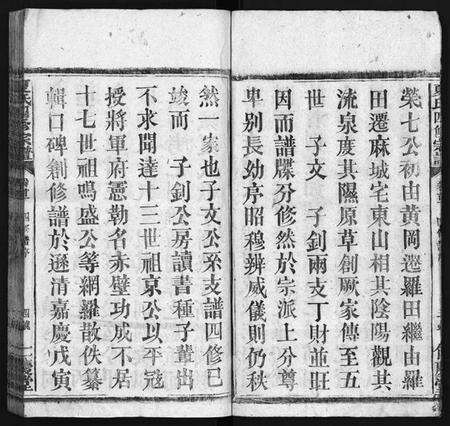 榮七公初由黃岡遷羅田繼由羅
田遷麻城宅東山相其陰陽觀其
流泉度其隰原草創厥家傳至五
世　子文　子釗兩支丁財並旺
因而譜牒分修然於宗派上分尊
卑别長幼序昭穆辨威儀則仍秩
然一家也子文公系支譜四修巳
竣而　子釗公房讀書種子輩出
不求聞達十三世祖京公以平冦
授將軍府憲勒名赤壁功成不居
十七世祖鳴盛公等網羅散佚纂
輯口碑創修譜於遜清嘉慶戊寅